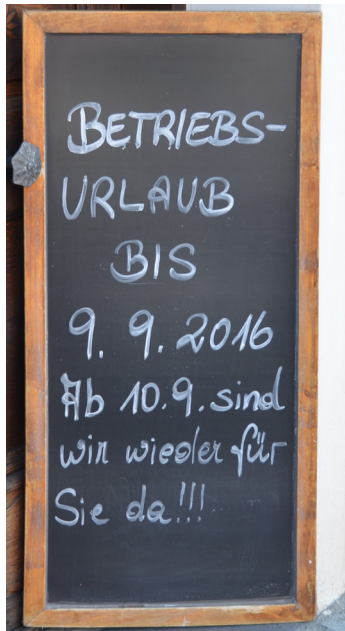 BETRIEBS-
URLAUB
BIS
9. 9. 2016
Ab 10.9. sind
wir wieder für
Sie da!!!